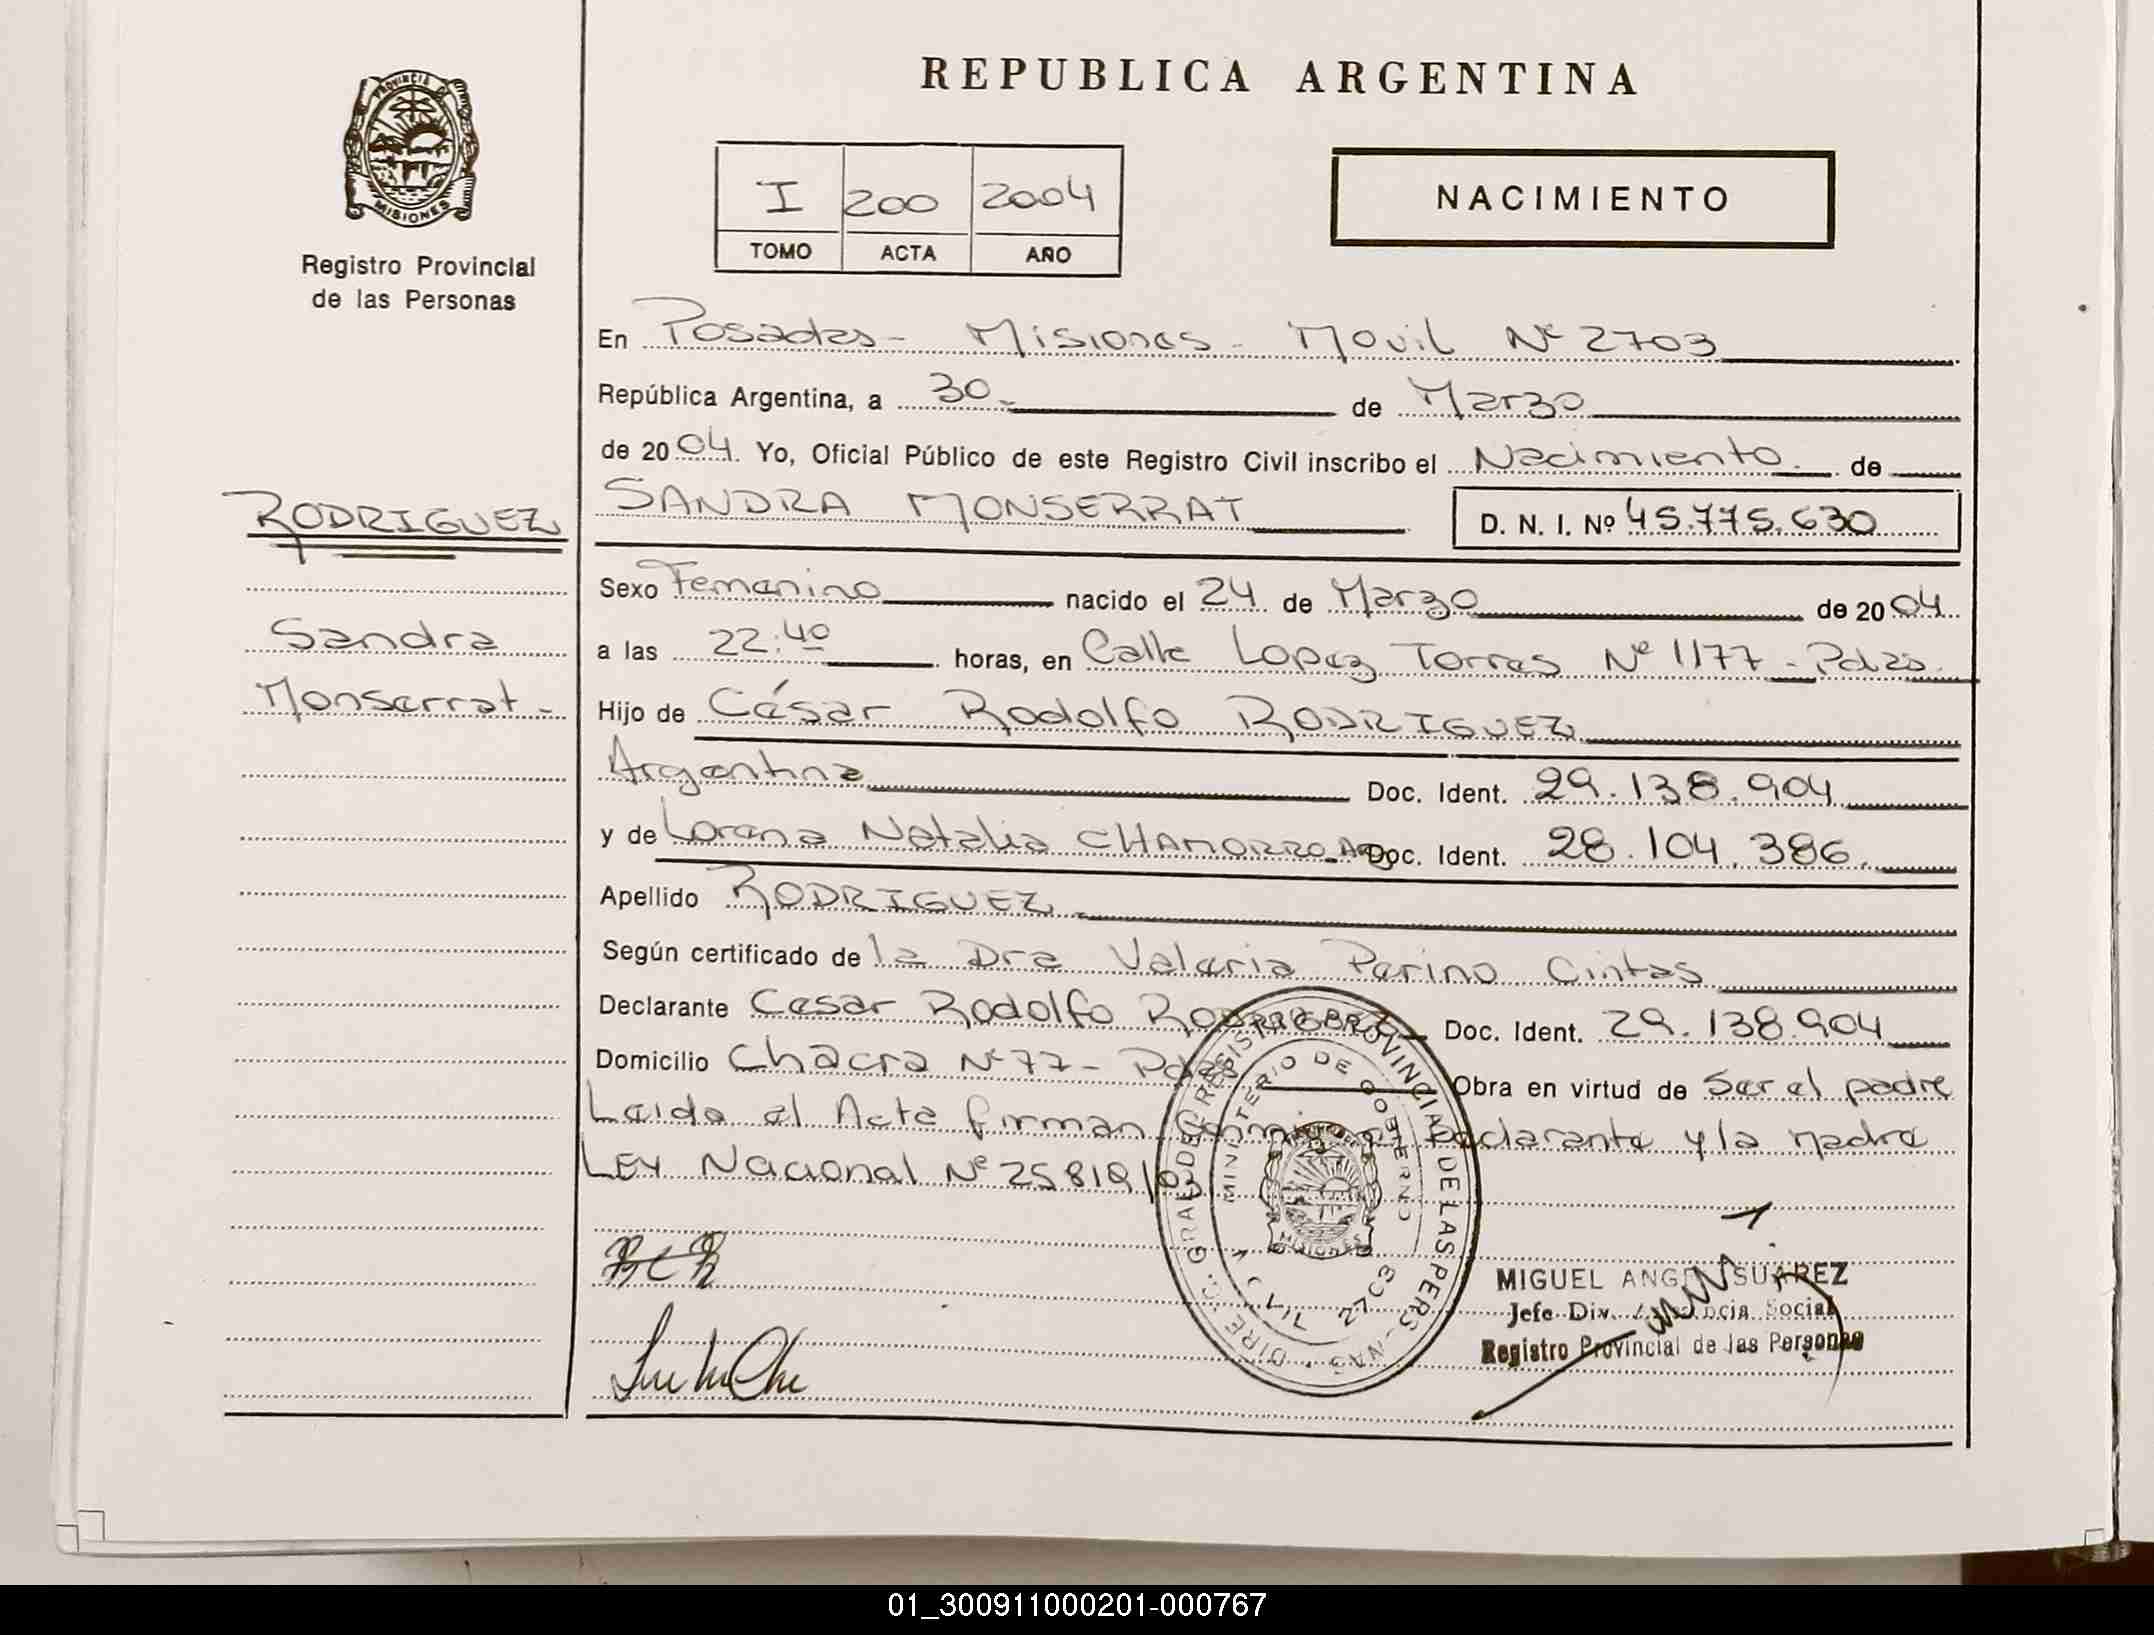 REPUBLICA ARGENTINA
PROVINCIA DE
MISIONES
Registro Provincial
de las Personas
I 200 2004
TOMO ACTA AÑO
NACIMIENTO
En Posadas - Misiones - Movil Nº 2703
República Argentina, a 30 de Marzo
de 2004. Yo, Oficial Público de este Registro Civil inscribo el Nacimiento de
RODRIGUEZ
SANDRA MONSERRAT
D. N. I. Nº 45.775.630
Sexo Femenino nacido el 24 de Marzo de 2004
Sandra
a las 22:40 horas, en Calle Lopez Torres Nº 1177 - Pdas
Monserrat -
Hijo de César Rodolfo RODRIGUEZ
Argentina Doc. Ident. 29.138.904
y de Lorena Natalia CHAMORRO Doc. Ident. 28.104.386.
Apellido RODRIGUEZ
Según certificado de la Dra Valeria Parino Cintas
Declarante Cesar Rodolfo RODRIGUEZ Doc. Ident. 29.138.904
Domicilio Chacra Nº 77 - Pdas Obra en virtud de Ser el padre
Leida el Acta firman conmigo el Declarante y la madre
LEY Nacional Nº 25819/03
REGISTRO PROVINCIAL DE LAS PERSONAS
MINISTERIO DE GOBIERNO
MISIONES
2703
MIGUEL ANGEL SUAREZ
Jefe Div. Social
Registro Provincial de las Personas
01_300911000201-000767